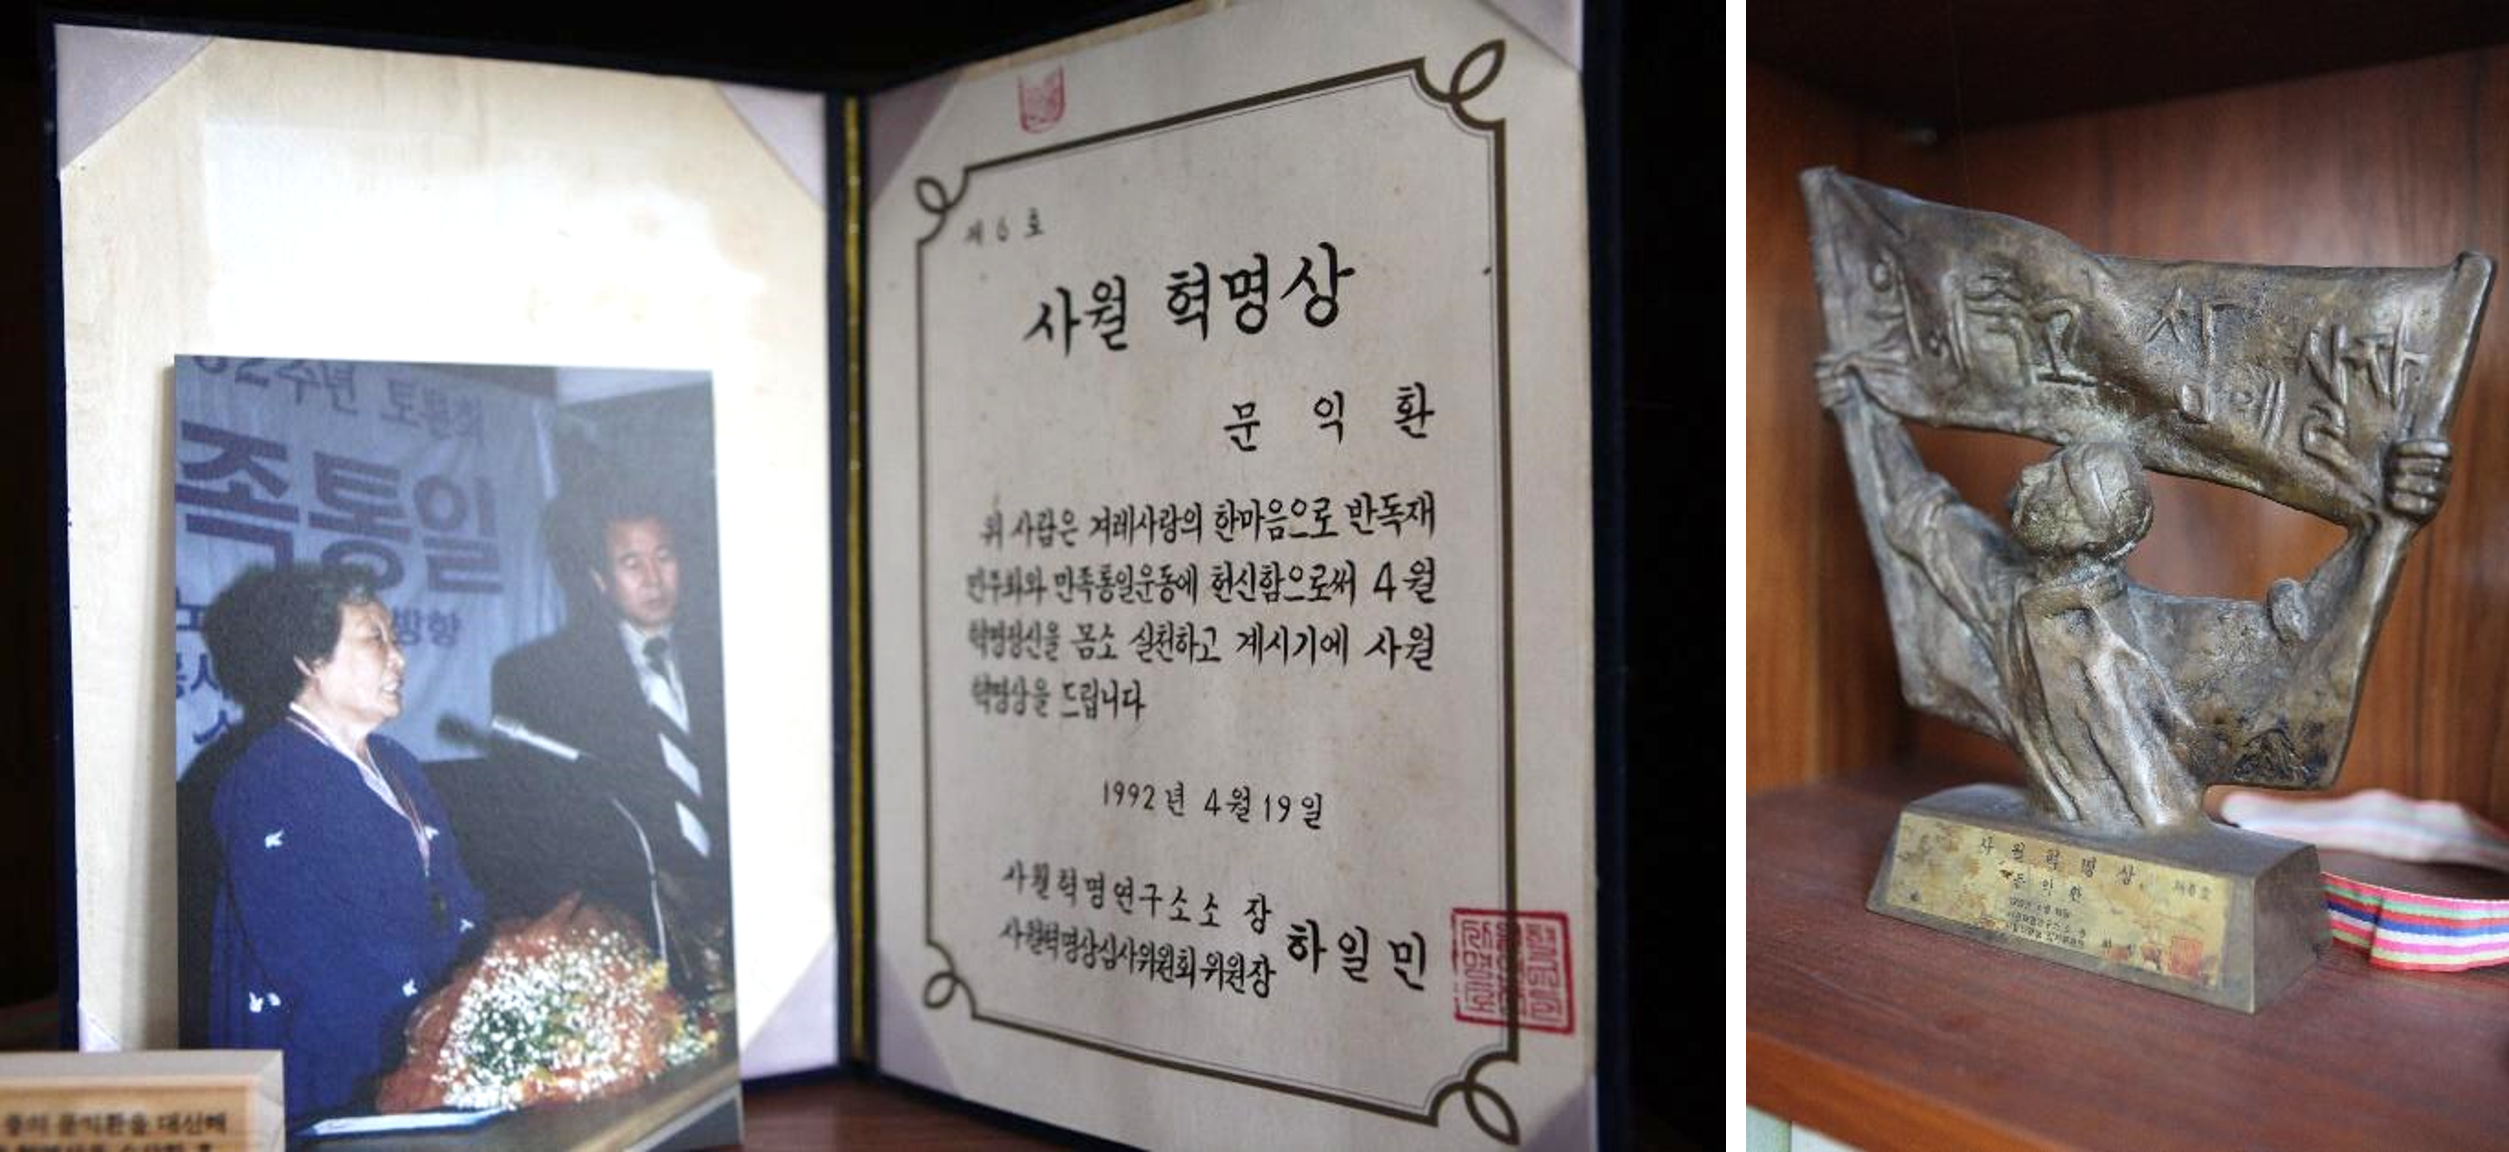 32주년 토론회
족통일
방향
중의 문익환을 대신해
제 6 호
사월 혁명상
문 익 환
위 사람은 겨레사랑의 한마음으로 반독재
민주화와 민족통일운동에 헌신함으로써 4월
혁명정신을 몸소 실천하고 계시기에 사월
혁명상을 드립니다
1992년 4월 19일
사월혁명연구소소 장
사월혁명상심사위원회 위원장
하일민
사 월 혁 명 상 제6호
문 익 환